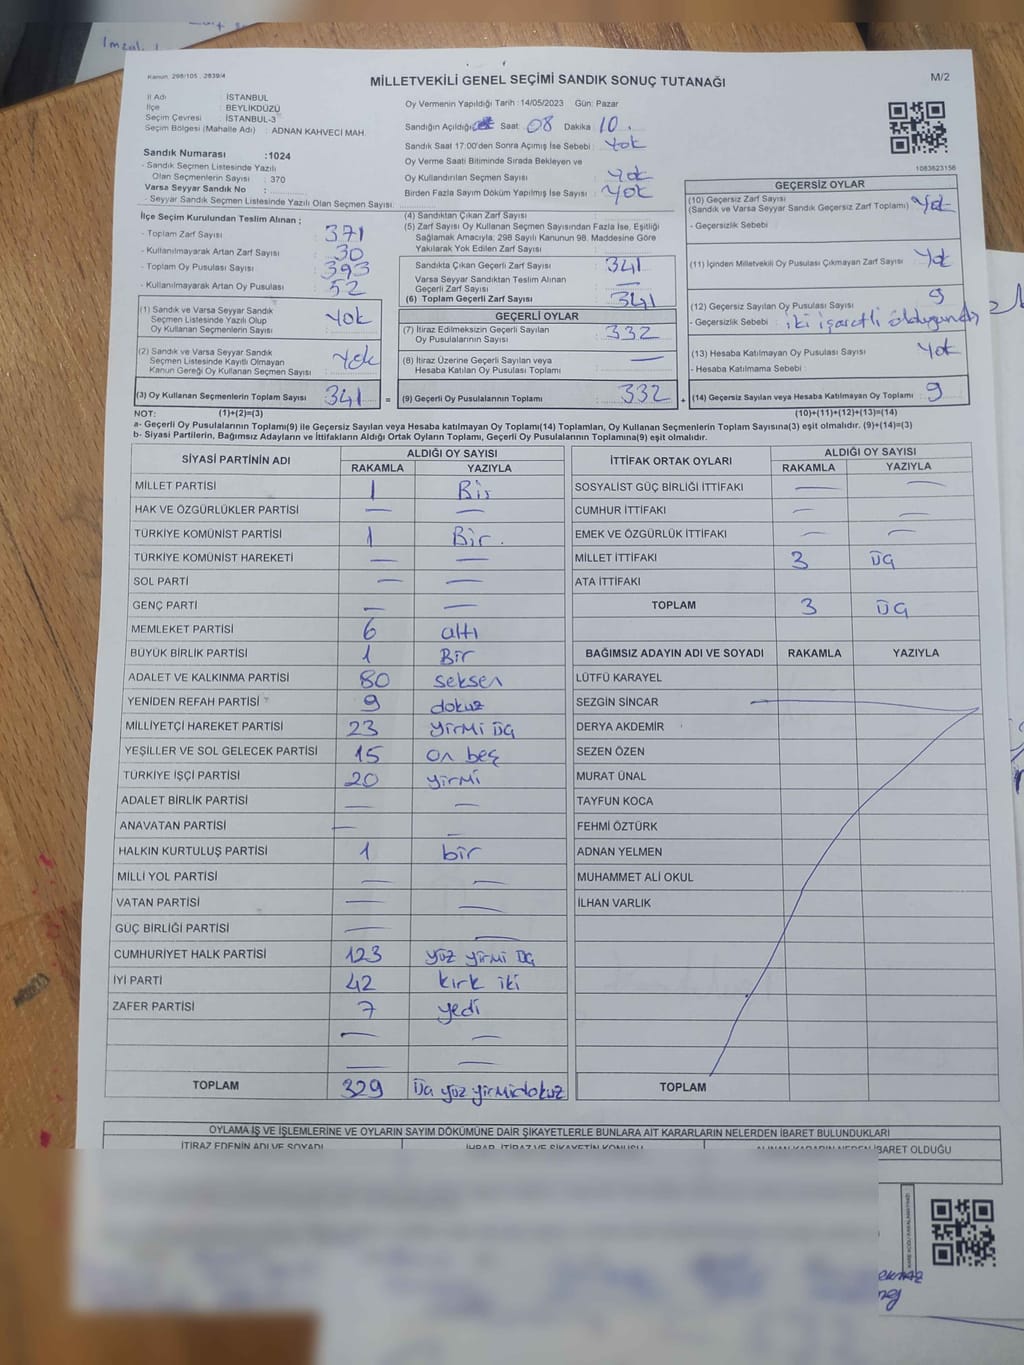 Kanun: 298/105, 2839/4
MİLLETVEKİLİ GENEL SEÇİMİ SANDIK SONUÇ TUTANAĞI
M/2
İl Adı : İSTANBUL
İlçe : BEYLİKDÜZÜ
Seçim Çevresi : İSTANBUL-3
Seçim Bölgesi (Mahalle Adı) : ADNAN KAHVECİ MAH.
Sandık Numarası :1024
- Sandık Seçmen Listesinde Yazılı
Olan Seçmenlerin Sayısı : 370
Varsa Seyyar Sandık No :
- Seyyar Sandık Seçmen Listesinde Yazılı Olan Seçmen Sayısı:
Oy Vermenin Yapıldığı Tarih :14/05/2023 Gün: Pazar
Sandığın Açıldığı Saat: 08 Dakika 10.
Sandık Saat 17:00'den Sonra Açımış İse Sebebi : Yok
Oy Verme Saati Bitiminde Sırada Bekleyen ve
Oy Kullandırılan Seçmen Sayısı : Yok
Birden Fazla Sayım Döküm Yapılmış İse Sayısı : Yok
1083623156
İlçe Seçim Kurulundan Teslim Alınan ;
- Toplam Zarf Sayısı : 371
- Kullanılmayarak Artan Zarf Sayısı : 30
- Toplam Oy Pusulası Sayısı : 393
- Kullanılmayarak Artan Oy Pusulası : 52
(1) Sandık ve Varsa Seyyar Sandık
Seçmen Listesinde Yazılı Olup
Oy Kullanan Seçmenlerin Sayısı : Yok
(2) Sandık ve Varsa Seyyar Sandık
Seçmen Listesinde Kayıtlı Olmayan
Kanun Gereği Oy Kullanan Seçmen Sayısı : Yok
(3) Oy Kullanan Seçmenlerin Toplam Sayısı : 341 =
(4) Sandıktan Çıkan Zarf Sayısı :
(5) Zarf Sayısı Oy Kullanan Seçmen Sayısından Fazla İse, Eşitliği
Sağlamak Amacıyla; 298 Sayılı Kanunun 98. Maddesine Göre
Yakılarak Yok Edilen Zarf Sayısı :
Sandıkta Çıkan Geçerli Zarf Sayısı : 341
Varsa Seyyar Sandıktan Teslim Alınan
Geçerli Zarf Sayısı : —
(6) Toplam Geçerli Zarf Sayısı : 341
GEÇERLİ OYLAR
(7) İtiraz Edilmeksizin Geçerli Sayılan
Oy Pusulalarının Sayısı : 332
(8) İtiraz Üzerine Geçerli Sayılan veya
Hesaba Katılan Oy Pusulası Toplamı : —
(9) Geçerli Oy Pusulalarının Toplamı : 332 +
GEÇERSİZ OYLAR
(10) Geçersiz Zarf Sayısı
(Sandık ve Varsa Seyyar Sandık Geçersiz Zarf Toplamı) : Yok
- Geçersizlik Sebebi :
(11) İçinden Milletvekili Oy Pusulası Çıkmayan Zarf Sayısı : Yok
(12) Geçersiz Sayılan Oy Pusulası Sayısı : 9
- Geçersizlik Sebebi : iki işaretli olduğundan
(13) Hesaba Katılmayan Oy Pusulası Sayısı : Yok
- Hesaba Katılmama Sebebi :
(14) Geçersiz Sayılan veya Hesaba Katılmayan Oy Toplamı : 9
NOT: (1)+(2)=(3) (10)+(11)+(12)+(13)=(14)
a- Geçerli Oy Pusulalarının Toplamı(9) ile Geçersiz Sayılan veya Hesaba katılmayan Oy Toplamı(14) Toplamları, Oy Kullanan Seçmenlerin Toplam Sayısına(3) eşit olmalıdır. (9)+(14)=(3)
b- Siyasi Partilerin, Bağımsız Adayların ve İttifakların Aldığı Ortak Oyların Toplamı, Geçerli Oy Pusulalarının Toplamına(9) eşit olmalıdır.
SİYASİ PARTİNİN ADI ALDIĞI OY SAYISI
RAKAMLA YAZIYLA
MİLLET PARTİSİ 1 Bir
HAK VE ÖZGÜRLÜKLER PARTİSİ — —
TÜRKİYE KOMÜNİST PARTİSİ 1 Bir.
TÜRKİYE KOMÜNİST HAREKETİ — —
SOL PARTİ — —
GENÇ PARTİ — —
MEMLEKET PARTİSİ 6 altı
BÜYÜK BİRLİK PARTİSİ 1 Bir
ADALET VE KALKINMA PARTİSİ 80 seksen
YENİDEN REFAH PARTİSİ 9 dokuz
MİLLİYETÇİ HAREKET PARTİSİ 23 yirmi üç
YEŞİLLER VE SOL GELECEK PARTİSİ 15 on beş
TÜRKİYE İŞÇİ PARTİSİ 20 yirmi
ADALET BİRLİK PARTİSİ — —
ANAVATAN PARTİSİ — —
HALKIN KURTULUŞ PARTİSİ 1 bir
MİLLİ YOL PARTİSİ — —
VATAN PARTİSİ — —
GÜÇ BİRLİĞİ PARTİSİ — —
CUMHURİYET HALK PARTİSİ 123 yüz yirmi üç
İYİ PARTİ 42 kırk iki
ZAFER PARTİSİ 7 yedi
— —
— —
TOPLAM 329 üç yüz yirmidokuz
İTTİFAK ORTAK OYLARI ALDIĞI OY SAYISI
RAKAMLA YAZIYLA
SOSYALİST GÜÇ BİRLİĞİ İTTİFAKI — —
CUMHUR İTTİFAKI — —
EMEK VE ÖZGÜRLÜK İTTİFAKI — —
MİLLET İTTİFAKI 3 üç
ATA İTTİFAKI
TOPLAM 3 üç
BAĞIMSIZ ADAYIN ADI VE SOYADI RAKAMLA YAZIYLA
LÜTFÜ KARAYEL
SEZGİN SİNCAR
DERYA AKDEMİR
SEZEN ÖZEN
MURAT ÜNAL
TAYFUN KOCA
FEHMİ ÖZTÜRK
ADNAN YELMEN
MUHAMMET ALİ OKUL
İLHAN VARLIK
TOPLAM
OYLAMA İŞ VE İŞLEMLERİNE VE OYLARIN SAYIM DÖKÜMÜNE DAİR ŞİKAYETLERLE BUNLARA AİT KARARLARIN NELERDEN İBARET BULUNDUKLARI
İTİRAZ EDENİN ADI VE SOYADI İHBAR, İTİRAZ VE ŞİKAYETİN KONUSU ALINAN KARARIN NEDEN İBARET OLDUĞU